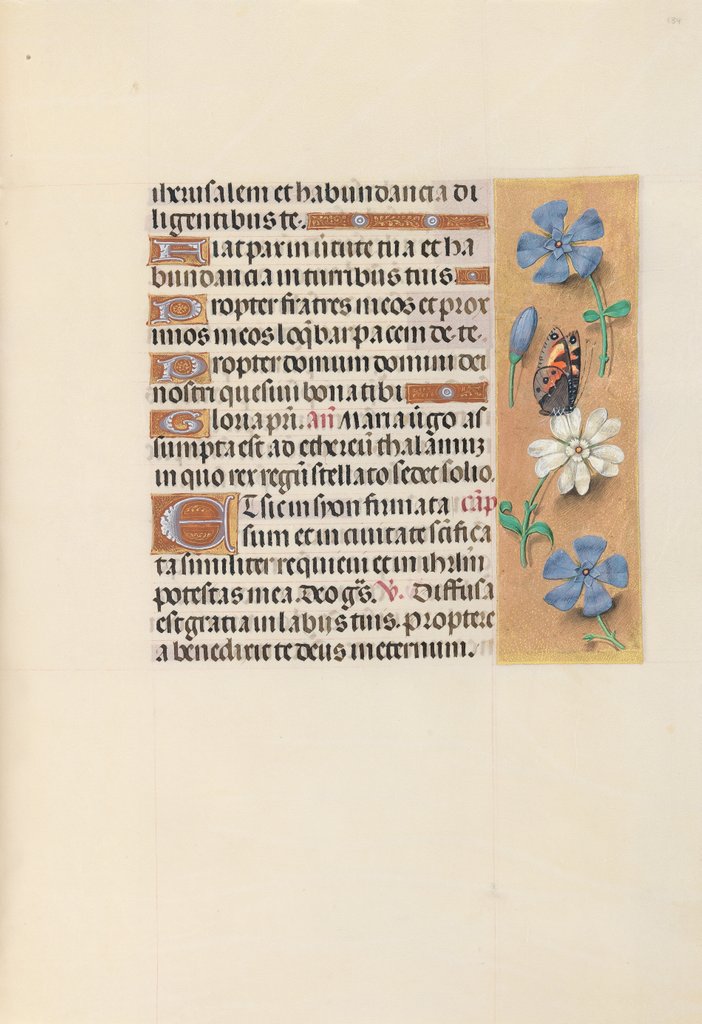 134
iherusalem et habundancia di
ligentibus te.
Fiat pax in ũtute tua et ha
bundancia in turribus tuis.
Propter fratres meos et prox
imos meos loq̃bar pacem de te.
Propter domum domini dei
nostri quesiui bona tibi
Gloria pr̃i. Añ Maria ũgo as
sumpta est ad ethereũ thalamũ
in quo rex regũ stellato sedet solio.
Et sic in syon firmata cãp
sum et in ciuitate scĩfica
ta similiter requieui et in ihrl̃m
potestas mea. Deo gr̃s. V̷. Diffusa
est gratia in labijs tuis. proptere
a benedixit te deus in eternum.